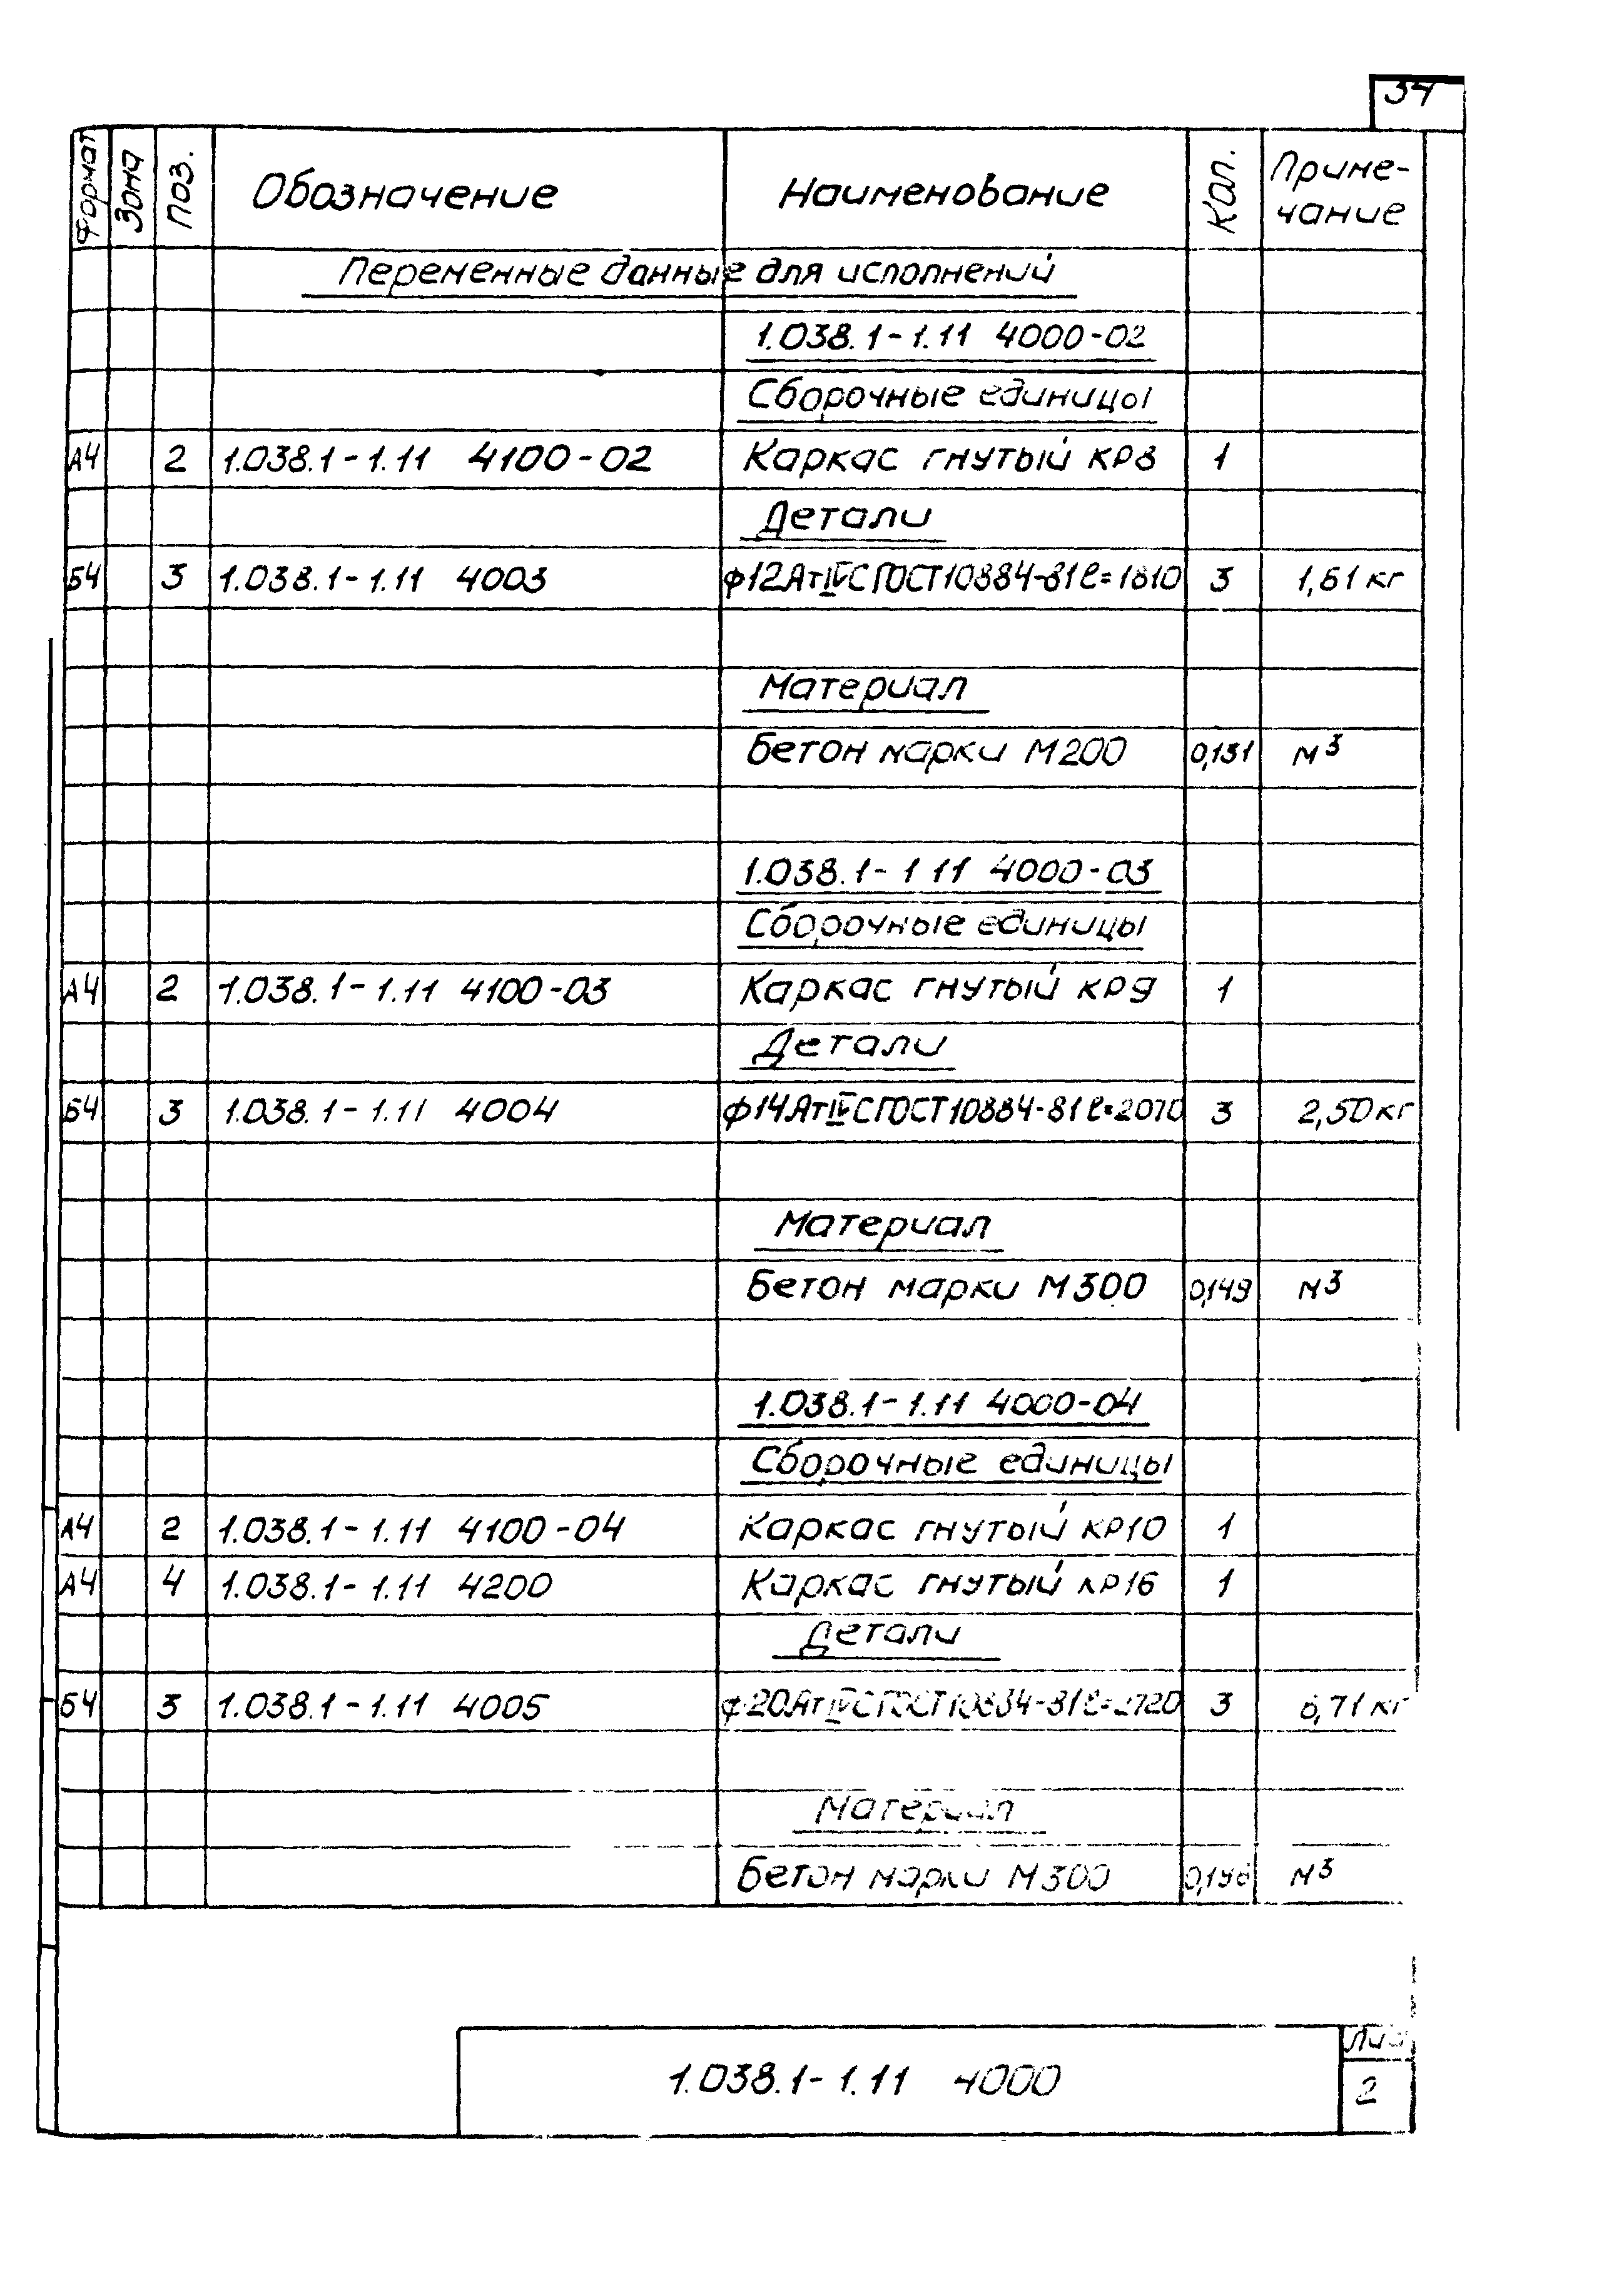 34
Формат Зона Поз. Обозначение Наименование Кол. Приме-
чание
Переменные данные для исполнений
1.038.1-1.11 4000-02
Сборочные единицы
А4 2 1.038.1-1.11 4100-02 Каркас гнутый КР8 1
Детали
Б4 3 1.038.1-1.11 4003 ф12АтIVС ГОСТ10884-81 ℓ=1810 3 1,61 кг
Материал
Бетон марки М200 0,131 м³
1.038.1-1 11 4000-03
Сборочные единицы
А4 2 1.038.1-1.11 4100-03 Каркас гнутый КР9 1
Детали
Б4 3 1.038.1-1.11 4004 ф14АтIVС ГОСТ10884-81 ℓ=2070 3 2,50 кг
Материал
Бетон марки М300 0,149 м³
1.038.1-1.11 4000-04
Сборочные единицы
А4 2 1.038.1-1.11 4100-04 Каркас гнутый КР10 1
А4 4 1.038.1-1.11 4200 Каркас гнутый КР16 1
Детали
Б4 3 1.038.1-1.11 4005 ф20АтIVС ГОСТ10884-81 ℓ=2720 3 6,71 кг
Материал
Бетон марки М300 м³
1.038.1-1.11 4000
2